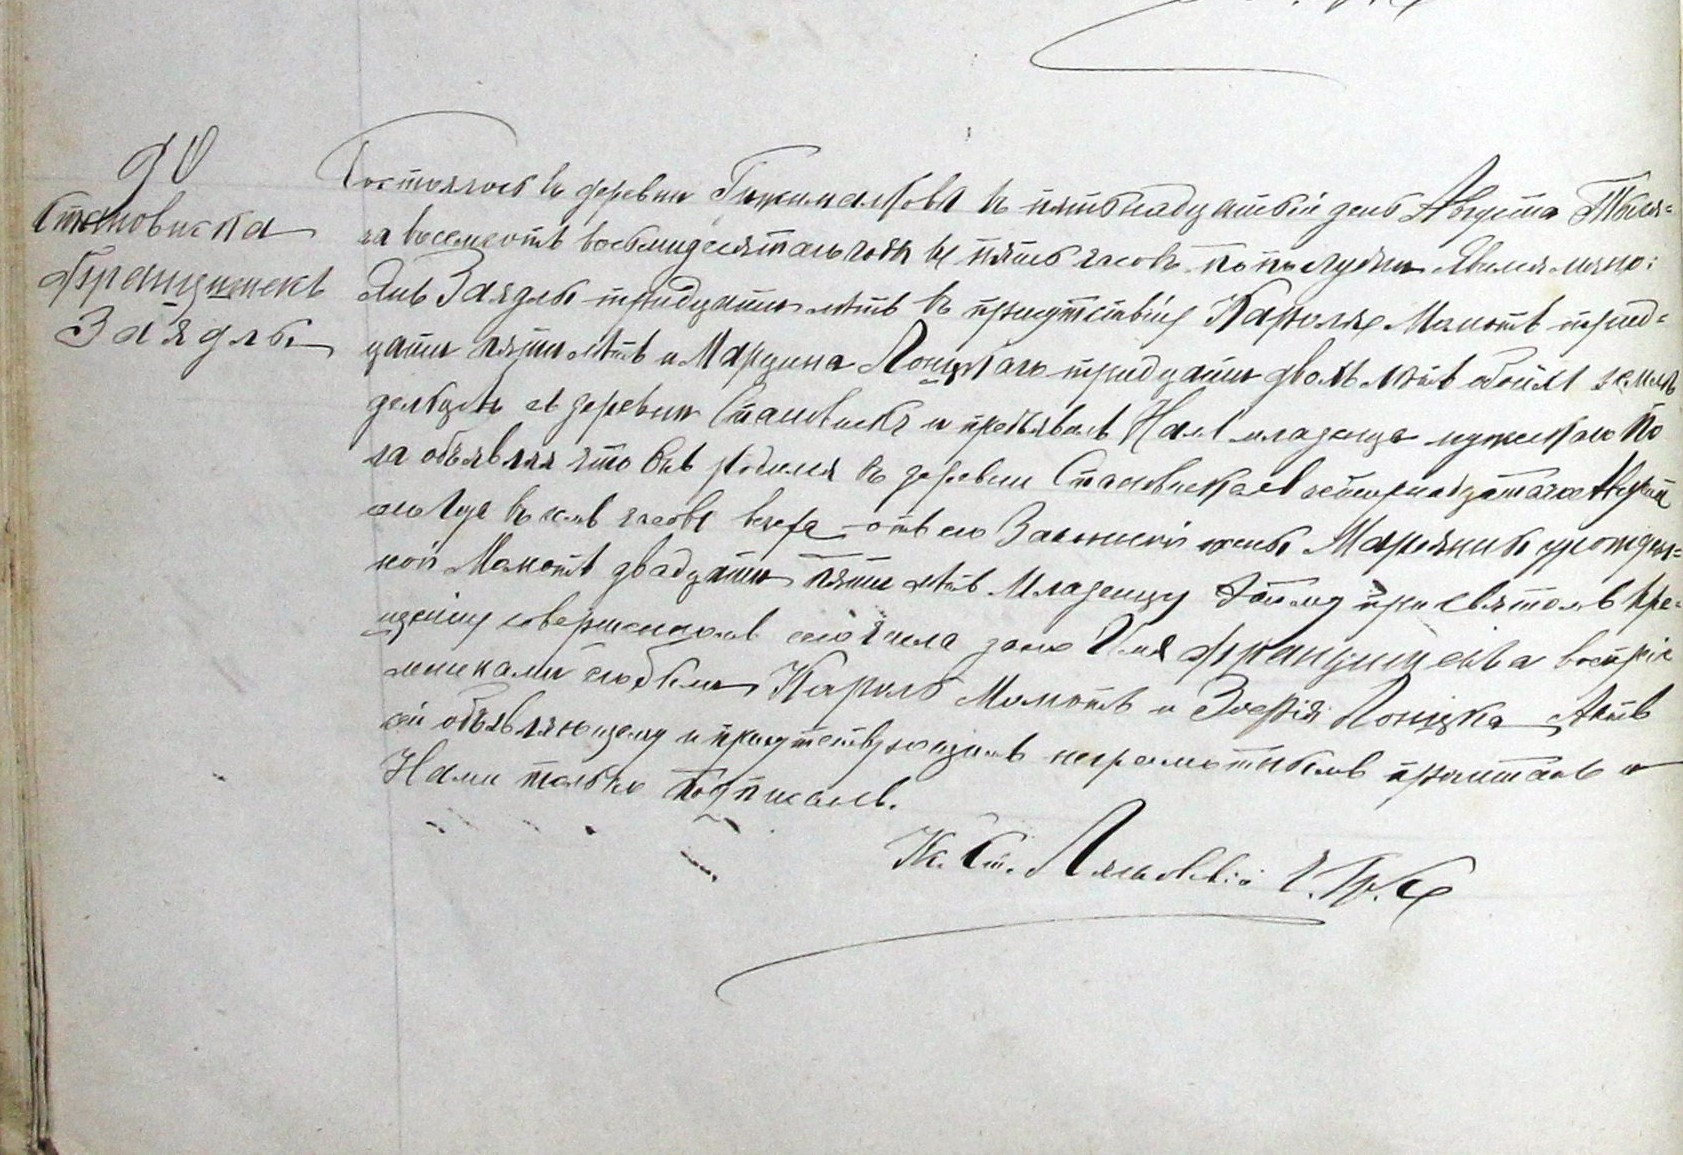 90
Становиска
Францишекъ
Заядлы
Состоялось въ деревни въ пятьнадцатый день Августа Тыся-
ча восемсотъ восьмидесятаго года въ пять часовъ по полудни Явился лично:
Янъ Заядлы тридцати лѣтъ въ присутствіи Кароля Мамотъ тридд-
цати пяти лѣтъ и Марцина Лонцкаго тридцати двохъ лѣтъ обоихъ земле
дельцевъ въ деревни Становискъ и предъявилъ Намъ младенца мужескаго По
ла объявляя что онъ родился въ деревни Становискахъ Августа
сего Года въ часовъ вечера отъ его Законной жены Маріянны урожден-
ной Мамотъ двадцати пяти лѣтъ Младенцу этому при Святомъ Кре-
щеніи совершенномъ сего числа дано Имя Францишека воспріе
мниками были Кароль Мамотъ и Зофія Лонцка Актъ
сей объявляющему и присутствующимъ неграмотнымъ прочитанъ и
Нами только Подписанъ.
Кс. Ст.